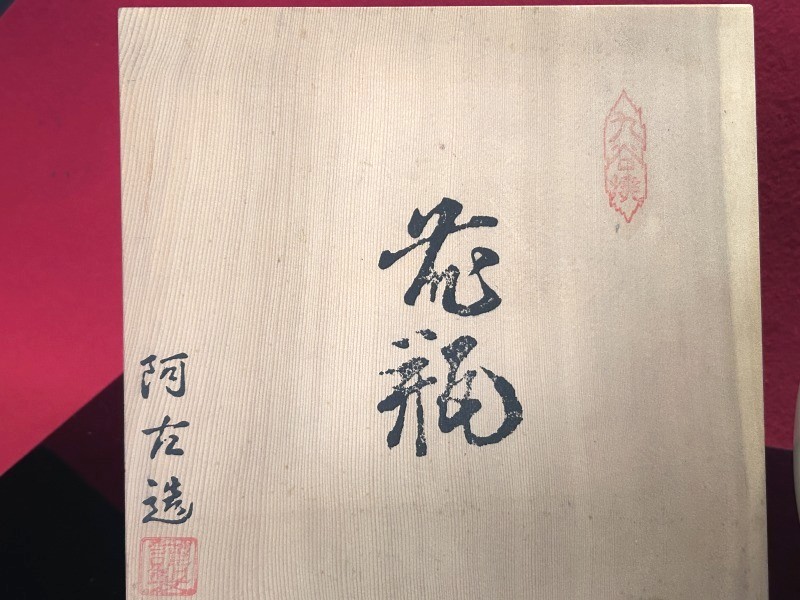 九谷焼
花瓶
阿古造